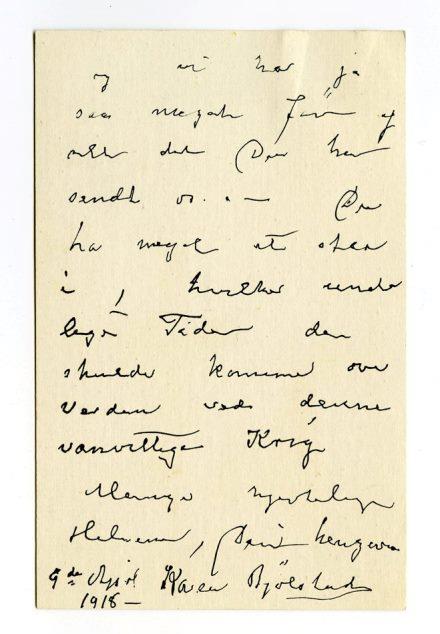 og vi har ja
saa meget før af
alt det Du har
sendt os. — Du
har meget at staa
i, hvilke unde
lige Tider der
skulde komme over
Verden ved denne
vanvittige Krig
Mange hjertelige
Hilsener, Din hengivne
9de April Karen Bjølstad
1918 —